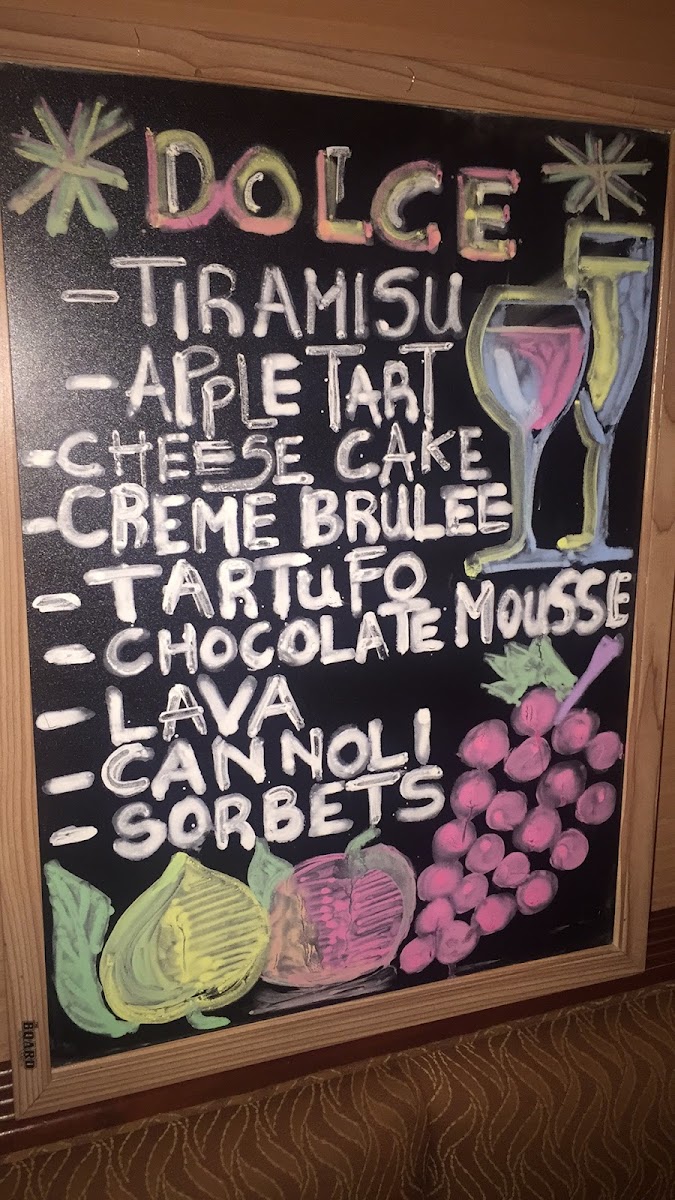 DOLCE
- TIRAMISU
- APPLE TART
- CHEESE CAKE
- CREME BRULEE
- TARTUFO
- CHOCOLATE MOUSSE
- LAVA
- CANNOLI
- SORBETS
BOARD